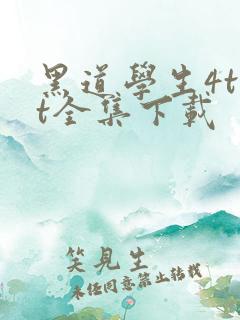 黑道學生4t
t全集下載
笑見生
未经同意禁止转载